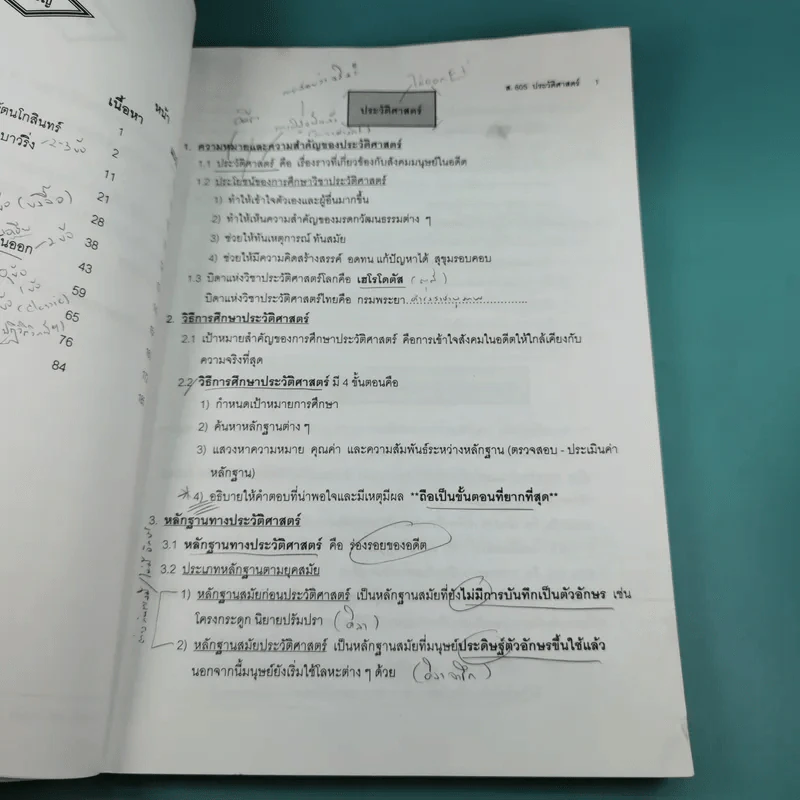 เนื้อหา หน้า
ตนโกสินทร์ 1
บาวริ่ง 2
11
21
28
นออก 38
43
59
65
76
84
ส. 605 ประวัติศาสตร์ 1
ประวัติศาสตร์
1. ความหมายและความสำคัญของประวัติศาสตร์
1.1 ประวัติศาสตร์ คือ เรื่องราวที่เกี่ยวข้องกับสังคมมนุษย์ในอดีต
1.2 ประโยชน์ของการศึกษาวิชาประวัติศาสตร์
1) ทำให้เข้าใจตัวเองและผู้อื่นมากขึ้น
2) ทำให้เห็นความสำคัญของมรดกวัฒนธรรมต่าง ๆ
3) ช่วยให้ทันเหตุการณ์ ทันสมัย
4) ช่วยให้มีความคิดสร้างสรรค์ อดทน แก้ปัญหาได้ สุขุมรอบคอบ
1.3 บิดาแห่งวิชาประวัติศาสตร์โลกคือ เฮโรโดตัส
บิดาแห่งวิชาประวัติศาสตร์ไทยคือ กรมพระยา
2. วิธีการศึกษาประวัติศาสตร์
2.1 เป้าหมายสำคัญของการศึกษาประวัติศาสตร์ คือการเข้าใจสังคมในอดีตให้ใกล้เคียงกับ
ความจริงที่สุด
2.2 วิธีการศึกษาประวัติศาสตร์ มี 4 ขั้นตอนคือ
1) กำหนดเป้าหมายการศึกษา
2) ค้นหาหลักฐานต่าง ๆ
3) แสวงหาความหมาย คุณค่า และความสัมพันธ์ระหว่างหลักฐาน (ตรวจสอบ - ประเมินค่า
หลักฐาน)
4) อธิบายให้คำตอบที่น่าพอใจและมีเหตุมีผล **ถือเป็นขั้นตอนที่ยากที่สุด**
3. หลักฐานทางประวัติศาสตร์
3.1 หลักฐานทางประวัติศาสตร์ คือ ร่องรอยของอดีต
3.2 ประเภทหลักฐานตามยุคสมัย
1) หลักฐานสมัยก่อนประวัติศาสตร์ เป็นหลักฐานสมัยที่ยังไม่มีการบันทึกเป็นตัวอักษร เช่น
โครงกระดูก นิยายปรัมปรา
2) หลักฐานสมัยประวัติศาสตร์ เป็นหลักฐานสมัยที่มนุษย์ประดิษฐ์ตัวอักษรขึ้นใช้แล้ว
นอกจากนี้มนุษย์ยังเริ่มใช้โลหะต่าง ๆ ด้วย